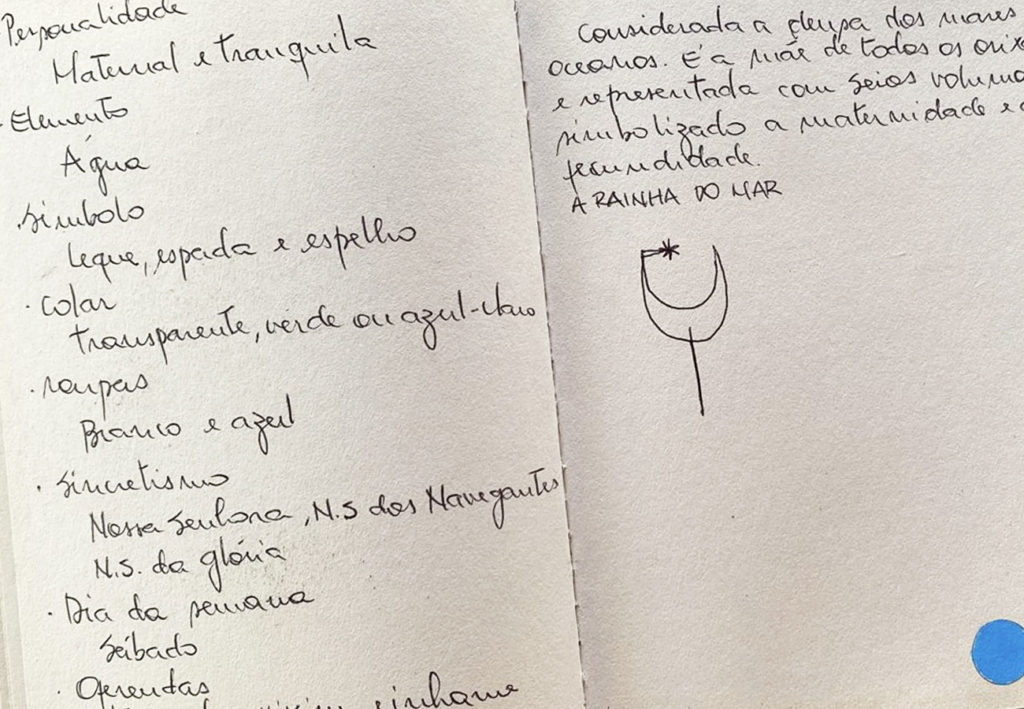 Personalidade
Maternal e tranquila
· Elemento
Água
· Símbolo
Leque, espada e espelho
· colar
transparente, verde ou azul-claro
· roupas
Branco e azul
· Sincretismo
Nossa Senhora, N.S dos Navegantes
N.S. da glória
· Dia da semana
Sábado
· Oferendas
e inhame
Considerada a deusa dos mares
oceanos. É a mãe de todos os orix
e representada com seios volumo
simbolizado a maternidade e a
fecundidade.
A RAINHA DO MAR